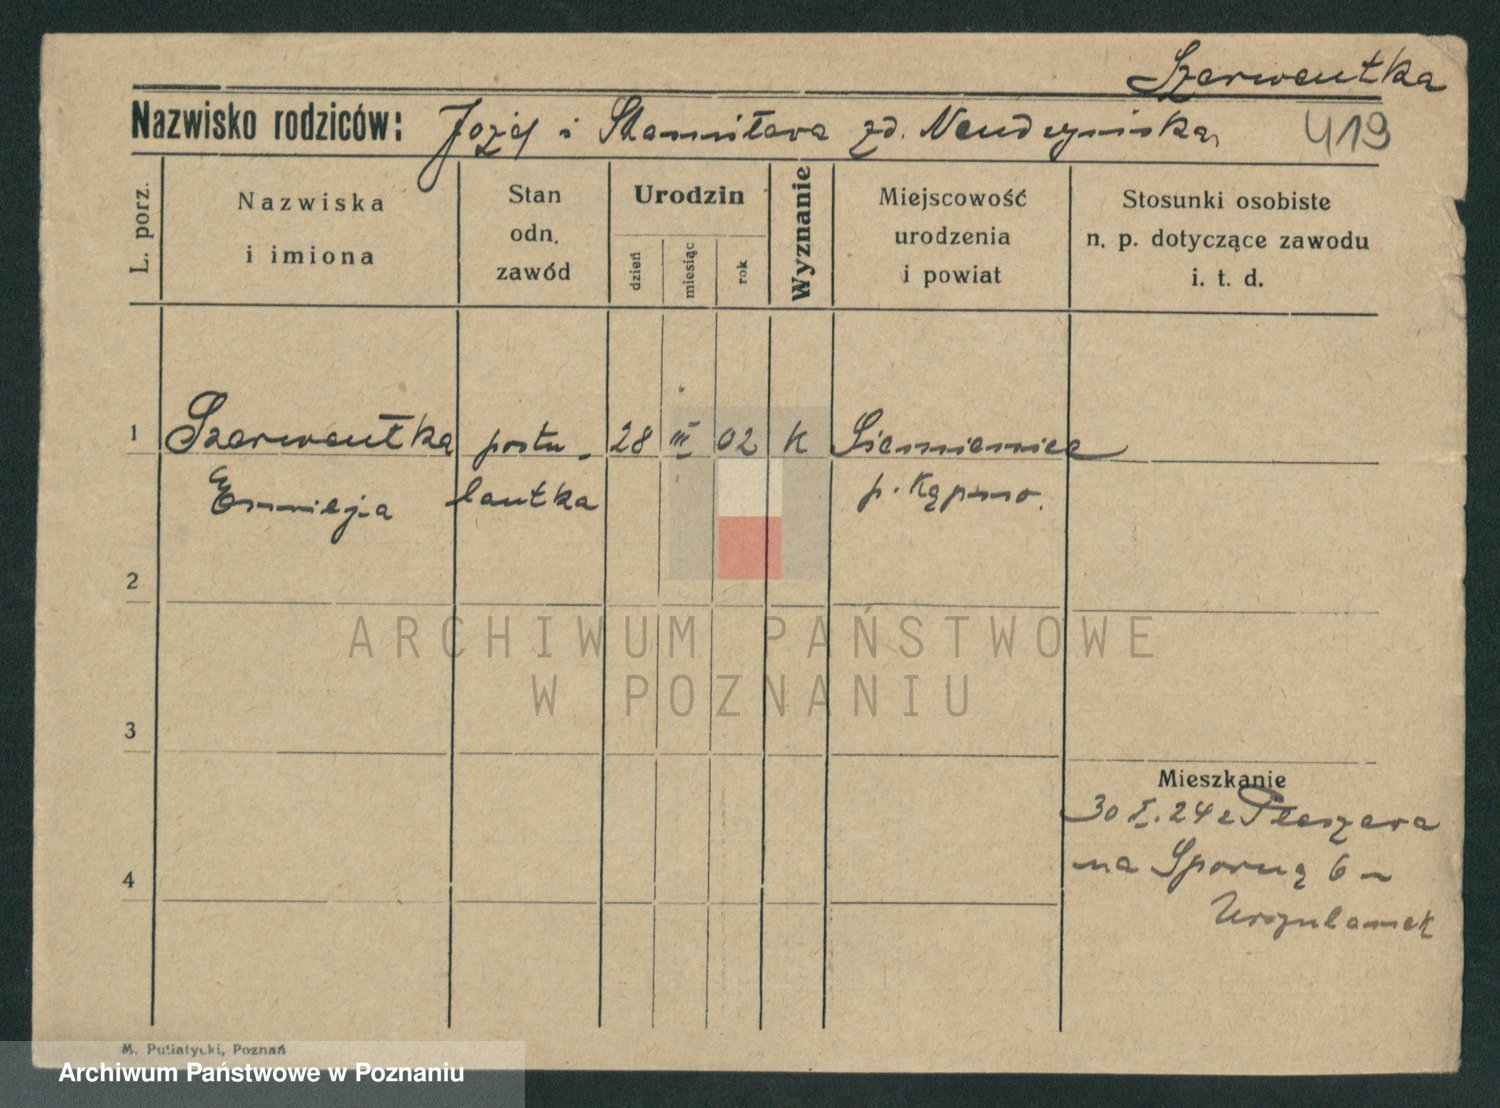 Szerwentka
Nazwisko rodziców: Józef i Stanisława zd. 419
L. porz.
Nazwiska
i imiona
Stan
odn.
zawód
Urodzin
dzień
miesiąc
rok
Wyznanie
Miejscowość
urodzenia
i powiat
Stosunki osobiste
n. p. dotyczące zawodu
i. t. d.
1 Szerwentka postu- 28 III 02 K Siemianice
Emilja lantka p. Kępno.
2
ARCHIWUM PAŃSTWOWE
W POZNANIU
3
Mieszkanie
30 I. 24 z Pleszewa
na Sporną 6 -
4
Urszulanek
M. Putiatycki, Poznań
Archiwum Państwowe w Poznaniu